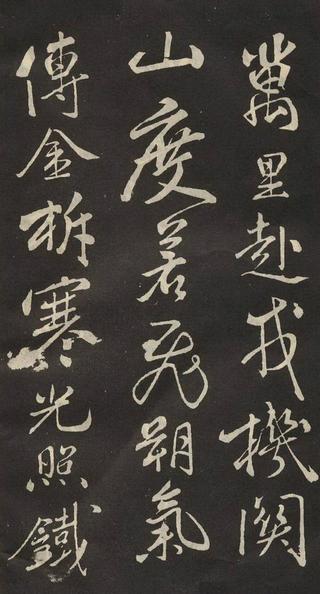 萬里赴戎機關
山度若飛朔氣
傳金柝寒光照鐵